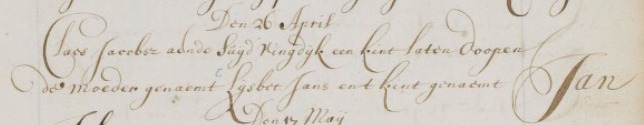 Den 26 April
Claes Jacobsz aende Suyd Ringdijk een kint laten Doopen
de moeder genaemt Lysbet Jans ent kint genaemt Jan
Den 17 Maij